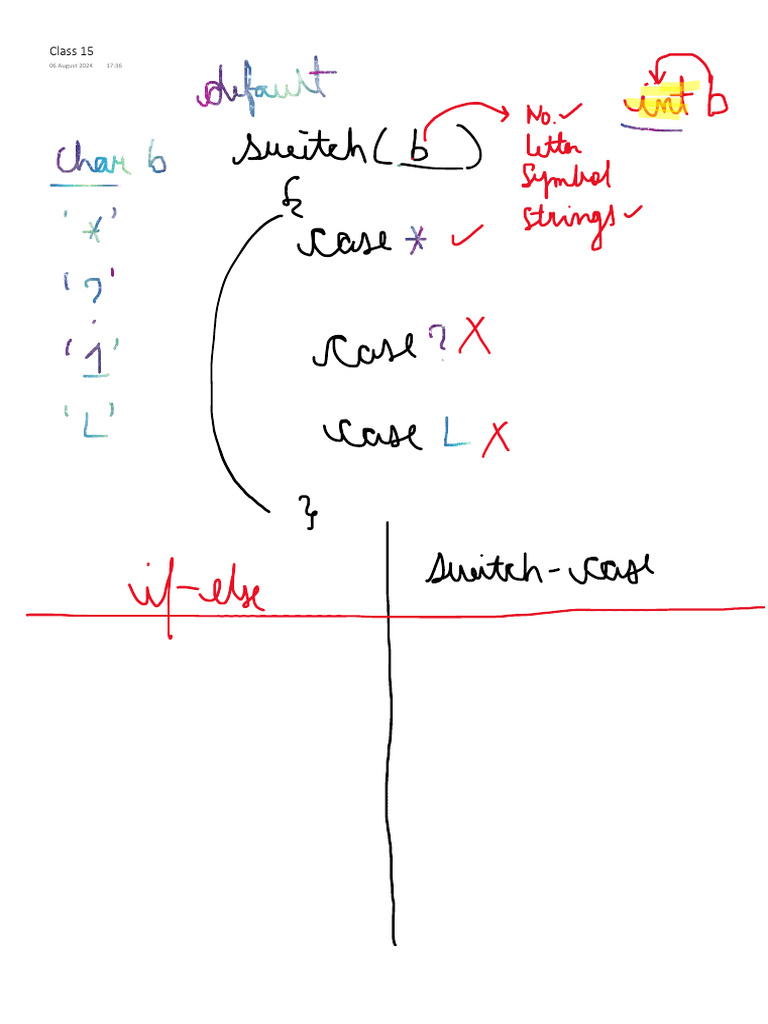 Class 15
06 August 2024 17:36
default
int b
switch( b )
No. ✓
Letter
Symbol
Strings ✓
char b
'*'
'?'
'1'
'L'
{
case * ✓
case ? X
case L X
}
if-else
switch-case